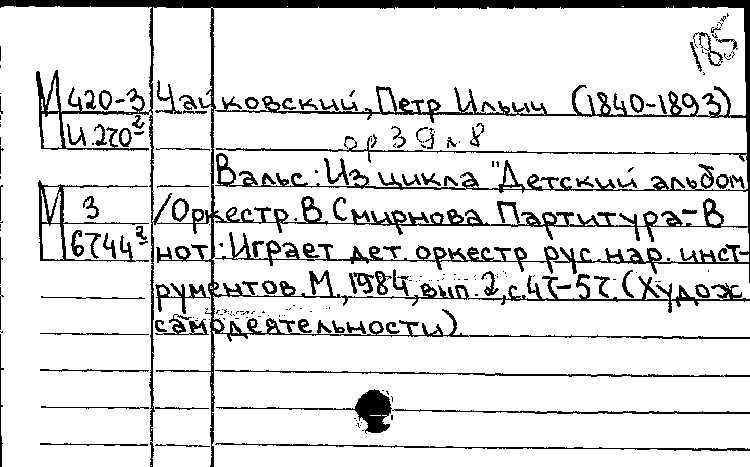 185
М 420-3 Чайковский, Петр Ильич (1840-1893)
И 270²
ор 39 № 8
Вальс: Из цикла "Детский альбом"
М 3 /Оркестр. В. Смирнова. Партитура.- В
6744³ нот.: Играет дет. оркестр рус. нар. инст-
рументов. М., 1984, вып. 2, с. 47-57. (Худож.
самодеятельности)